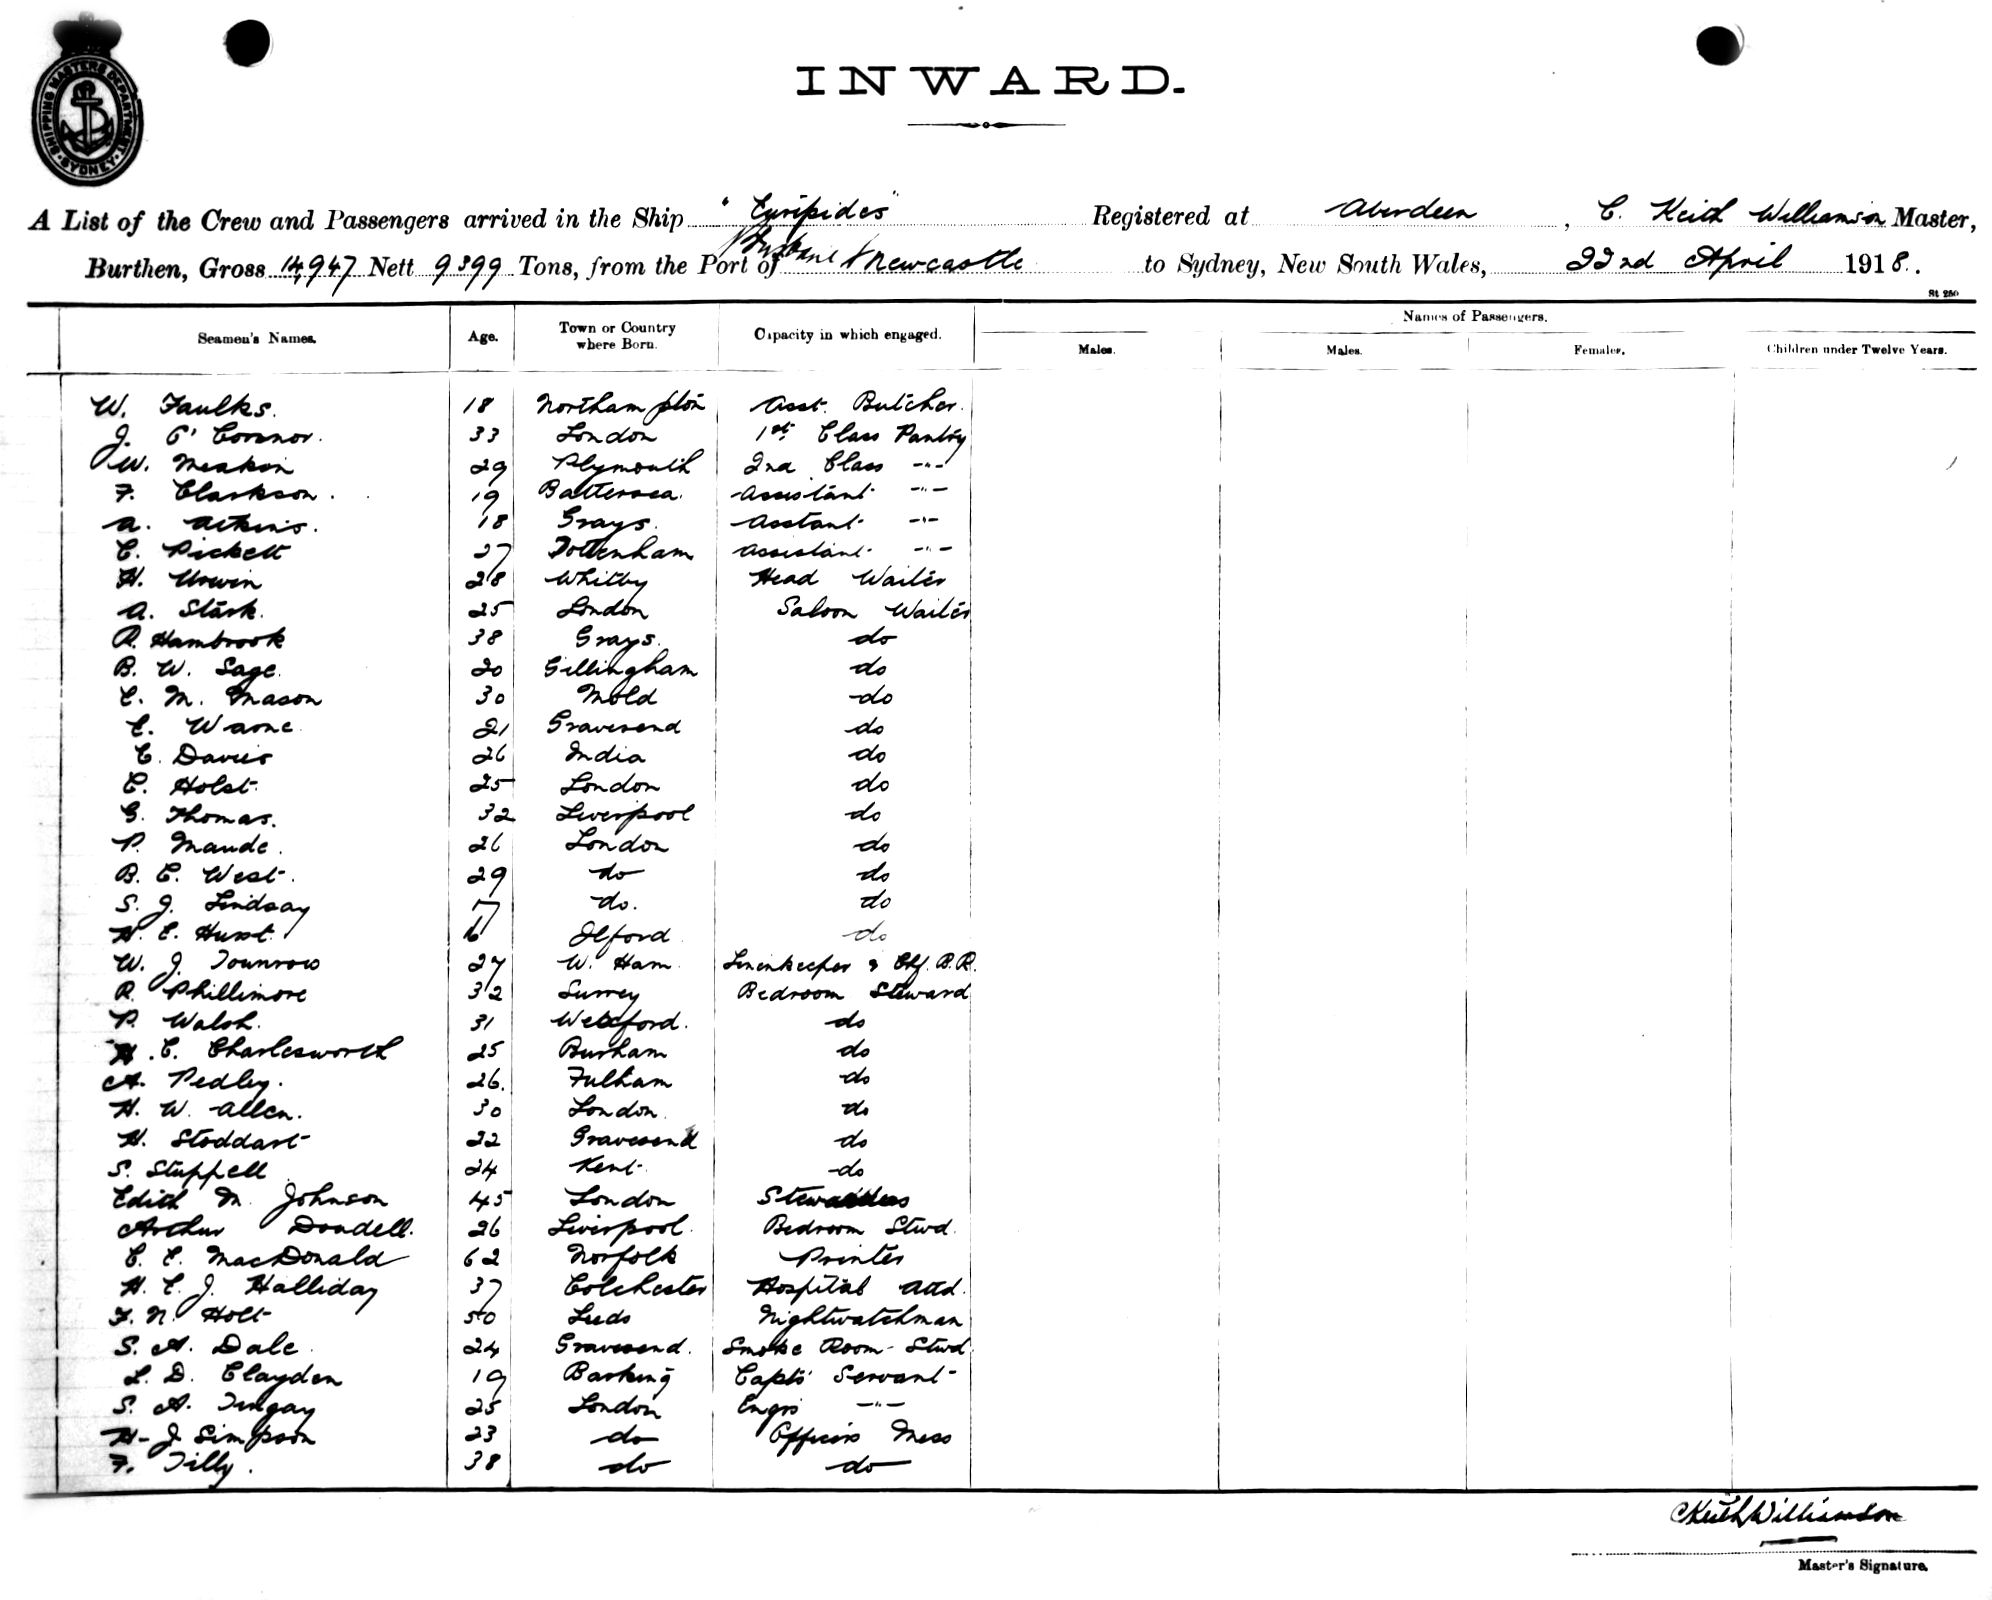 SHIPPING MASTERS DEPARTMENT. SYDNEY.
INWARD.
A List of the Crew and Passengers arrived in the Ship "Euripides" Registered at Aberdeen, C. Keith Williamson Master,
Burthen, Gross 14,947 Nett 9399 Tons, from the Port of Brisbane & Newcastle to Sydney, New South Wales, 22nd April 1918.
St 250
Seamen's Names. Age. Town or Country where Born. Capacity in which engaged. Names of Passengers.
Males. Males. Females. Children under Twelve Years.
W. Faulks. 18 Northampton Asst. Butcher.
J. O'Connor. 33 London 1st Class Pantry
W. Meakin 29 Plymouth 2nd Class -"-
F. Clarkson. 19 Battersea. Assistant -"-
A. Atkins. 18 Grays. Asstant -"-
C. Pickett 27 Tottenham Assistant -"-
H. Urwin 28 Whitby Head Waiter
A. Stark. 25 London Saloon Waiter
R. Hambrook 38 Grays. do
B. W. Sage. 20 Gillingham do
C. M. Mason 30 Mold do
E. Warne 21 Gravesend do
E. Davies 26 India do
C. Holst. 25 London do
G. Thomas. 32 Liverpool do
P. Maude. 26 London do
B. E. West. 29 do do
S. J. Lindsay 17 do. do
H. E. Hurst. 16 Ilford do
W. J. Townrow 27 W. Ham. Linenkeeper & Chf. B.R.
R. Phillimore 32 Surrey Bedroom Steward
P. Walsh. 31 Wexford. do
H. C. Charlesworth 25 Burham do
A. Pedley. 26. Fulham do
H. W. Allen. 30 London. do
H. Stoddart 22 Gravesend do
S. Stuppell 24 Kent. do
Edith M. Johnson 45 London Stewardess
Arthur Dondell. 26 Liverpool. Bedroom Stwd.
C. E. MacDonald 62 Norfolk Printer
H. E. J. Halliday 37 Colchester Hospital Attd.
F. N. Holt 50 Leeds Nightwatchman
S. A. Dale. 24 Gravesend. Smoke Room Stwd.
L. D. Clayden 19 Barking Capts' Servant
S. A. Tingay 25 London Engrs -"-
H. J. Simpson 23 do Officers Mess
F. Tilly. 38 do do
C Keith Williamson
Master's Signature.